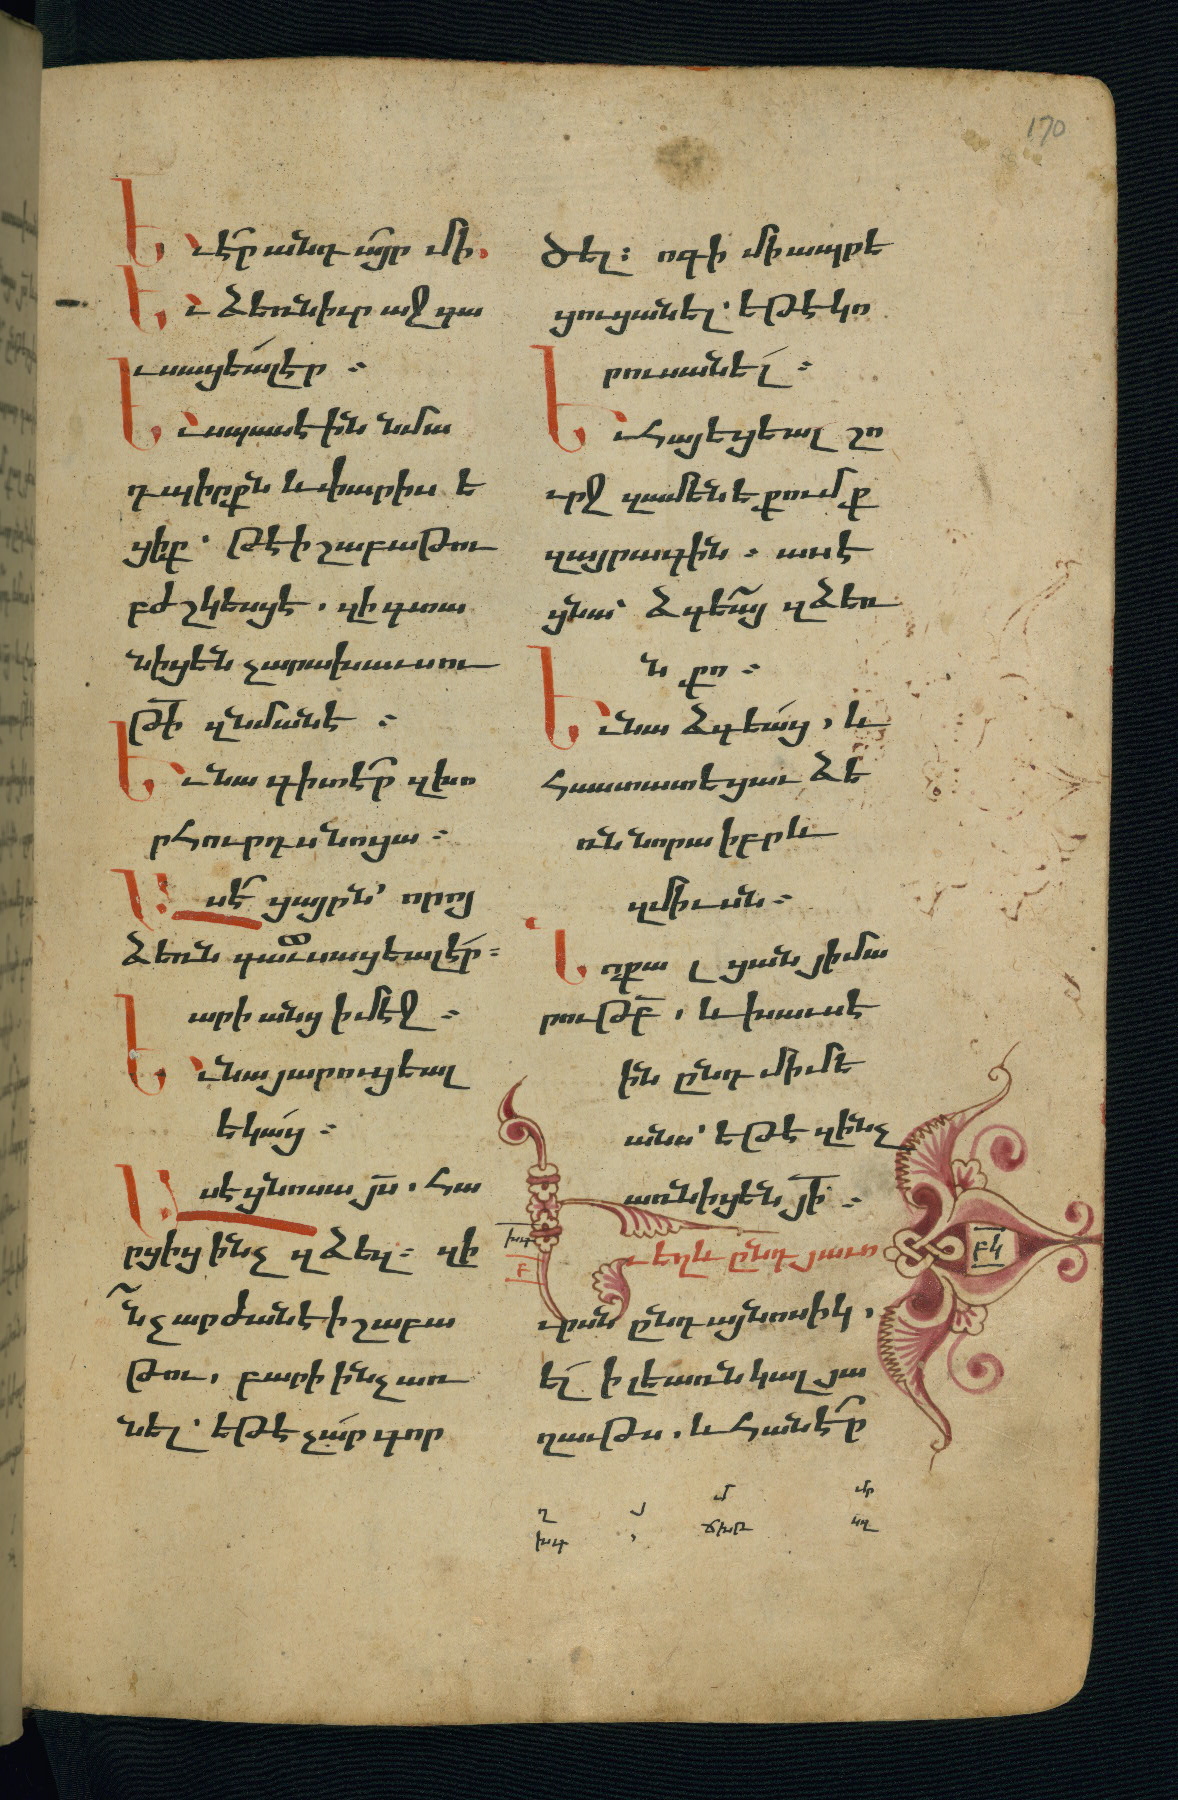 170
Եւ էր անդ այր մի.
Եւ ձեռն իւր աջ գա
ւսացեալ էր ։
Եւ սպասէին նմա
դպիրքն և փարիսե
ցիք՝ թէ ի շաբաթու
բժշկեսցէ. զի գտա
նիցեն չարախաւսու
թի զնմանէ ։
Եւ նա գիտէր զխո
րհուրդս նոցա ։
Ասէ ցայրն՝ որոյ
ձեռն գաւսացեալ էր ։
արի անց ի մէջ ։
Եւ նա յարուցեալ
եկաց ։
Ասէ ցնոսա յս. հա
րցից ինչ զձեզ ։ զի
նչ արժան է ի շաբա
թու, բարի ինչ առ
նել՝ եթէ չար գոր
ծել ։ ոգի մի ապրե
ցուցանել՝ եթէ կո
րուսանել ։
Եւ հայեցեալ շո
ւրջ զամենեքումք
զայրագին ։ ասէ
ցնա՝ ձգեա զձեռ
ն քո ։
Եւ նա ձգեաց, և
հաստատեցաւ ձե
ռն նորա իբրև
զմիւսն ։
Նոքա լցան յիմա
րութբ, և խաւսէ
ին ընդ միմե
անս՝ եթէ զինչ
առնիցեն յի ։
Եւ եղև ընդ յաւո
ւրսն ընդ այնոսիկ,
ել ի լեառն կալ յա
ղաւթս. և հանէր
բկ